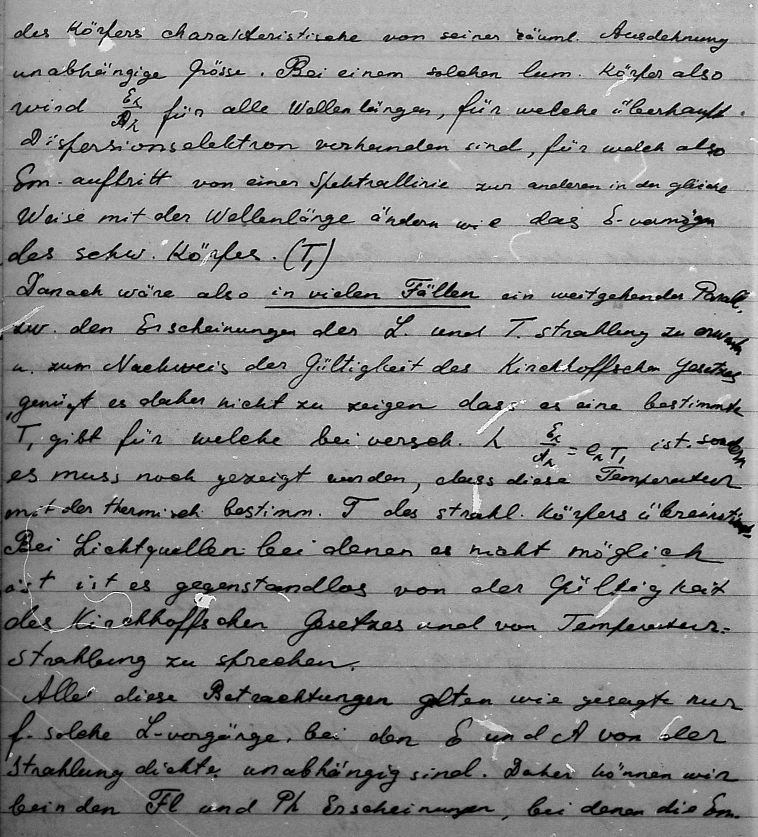 des Körpers charakteristische von seiner räuml. Ausdehnung
unabhängige Grösse. Bei einem solchen lum. Körper also
wird Eλ/Aλ für alle Wellenlängen, für welche überhaupt
Dispersionselektron vorhanden sind, für welch also
Em-auftritt von einer Spektrallinie zur anderen in der gleiche
Weise mit der Wellenlänge ändern wie das E-vermögen
des schw. Körpers. (T₁)
Danach wäre also in vielen Fällen ein weitgehender Parall.
zw. den Erscheinungen der L. und T. strahlung zu erwarten
u. zum Nachweis der Gültigkeit des Kirchhoffschen Gesetzes
genügt es daher nicht zu zeigen dass es eine bestimmte
T₁ gibt für welche bei versch. λ Eλ/Aλ = eλT₁ ist. sondern
es muss noch gezeigt werden, dass diese Temperatur
mit der thermisch bestimm. T des strahl. Körpers übereinstimmt.
Bei Lichtquellen bei denen es nicht möglich
ist ist es gegenstandlos von der Gültigkeit
des Kirchhoffschen Gesetzes und von Temperatur-
strahlung zu sprechen.
Alle diese Betrachtungen gelten wie gesagt nur
f. solche L-vorgänge, bei den E und A von der
Strahlung dichte unabhängig sind. Daher können wir
bein den Fl und Ph Erscheinungen, bei denen die Em.